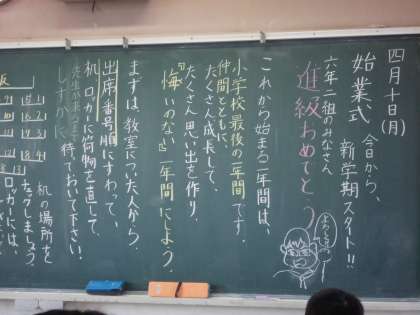 四月十日(月)
始業式 今日から、新学期スタート!!
六年二組のみなさん
進級おめでとう
これから始まる一年間は、
小学校最後の一年間です。
仲間とともに、
たくさん成長して、
たくさん思い出を作り、
『悔いのない』一年間にしよう。
まずは、教室についた人から、
出席番号順にすわって、
机、ロッカーに荷物を直して、
先生が来るまで待っておいて下さい。
しずかに
机の場所を
チェックしましょう。
ロッカーには、